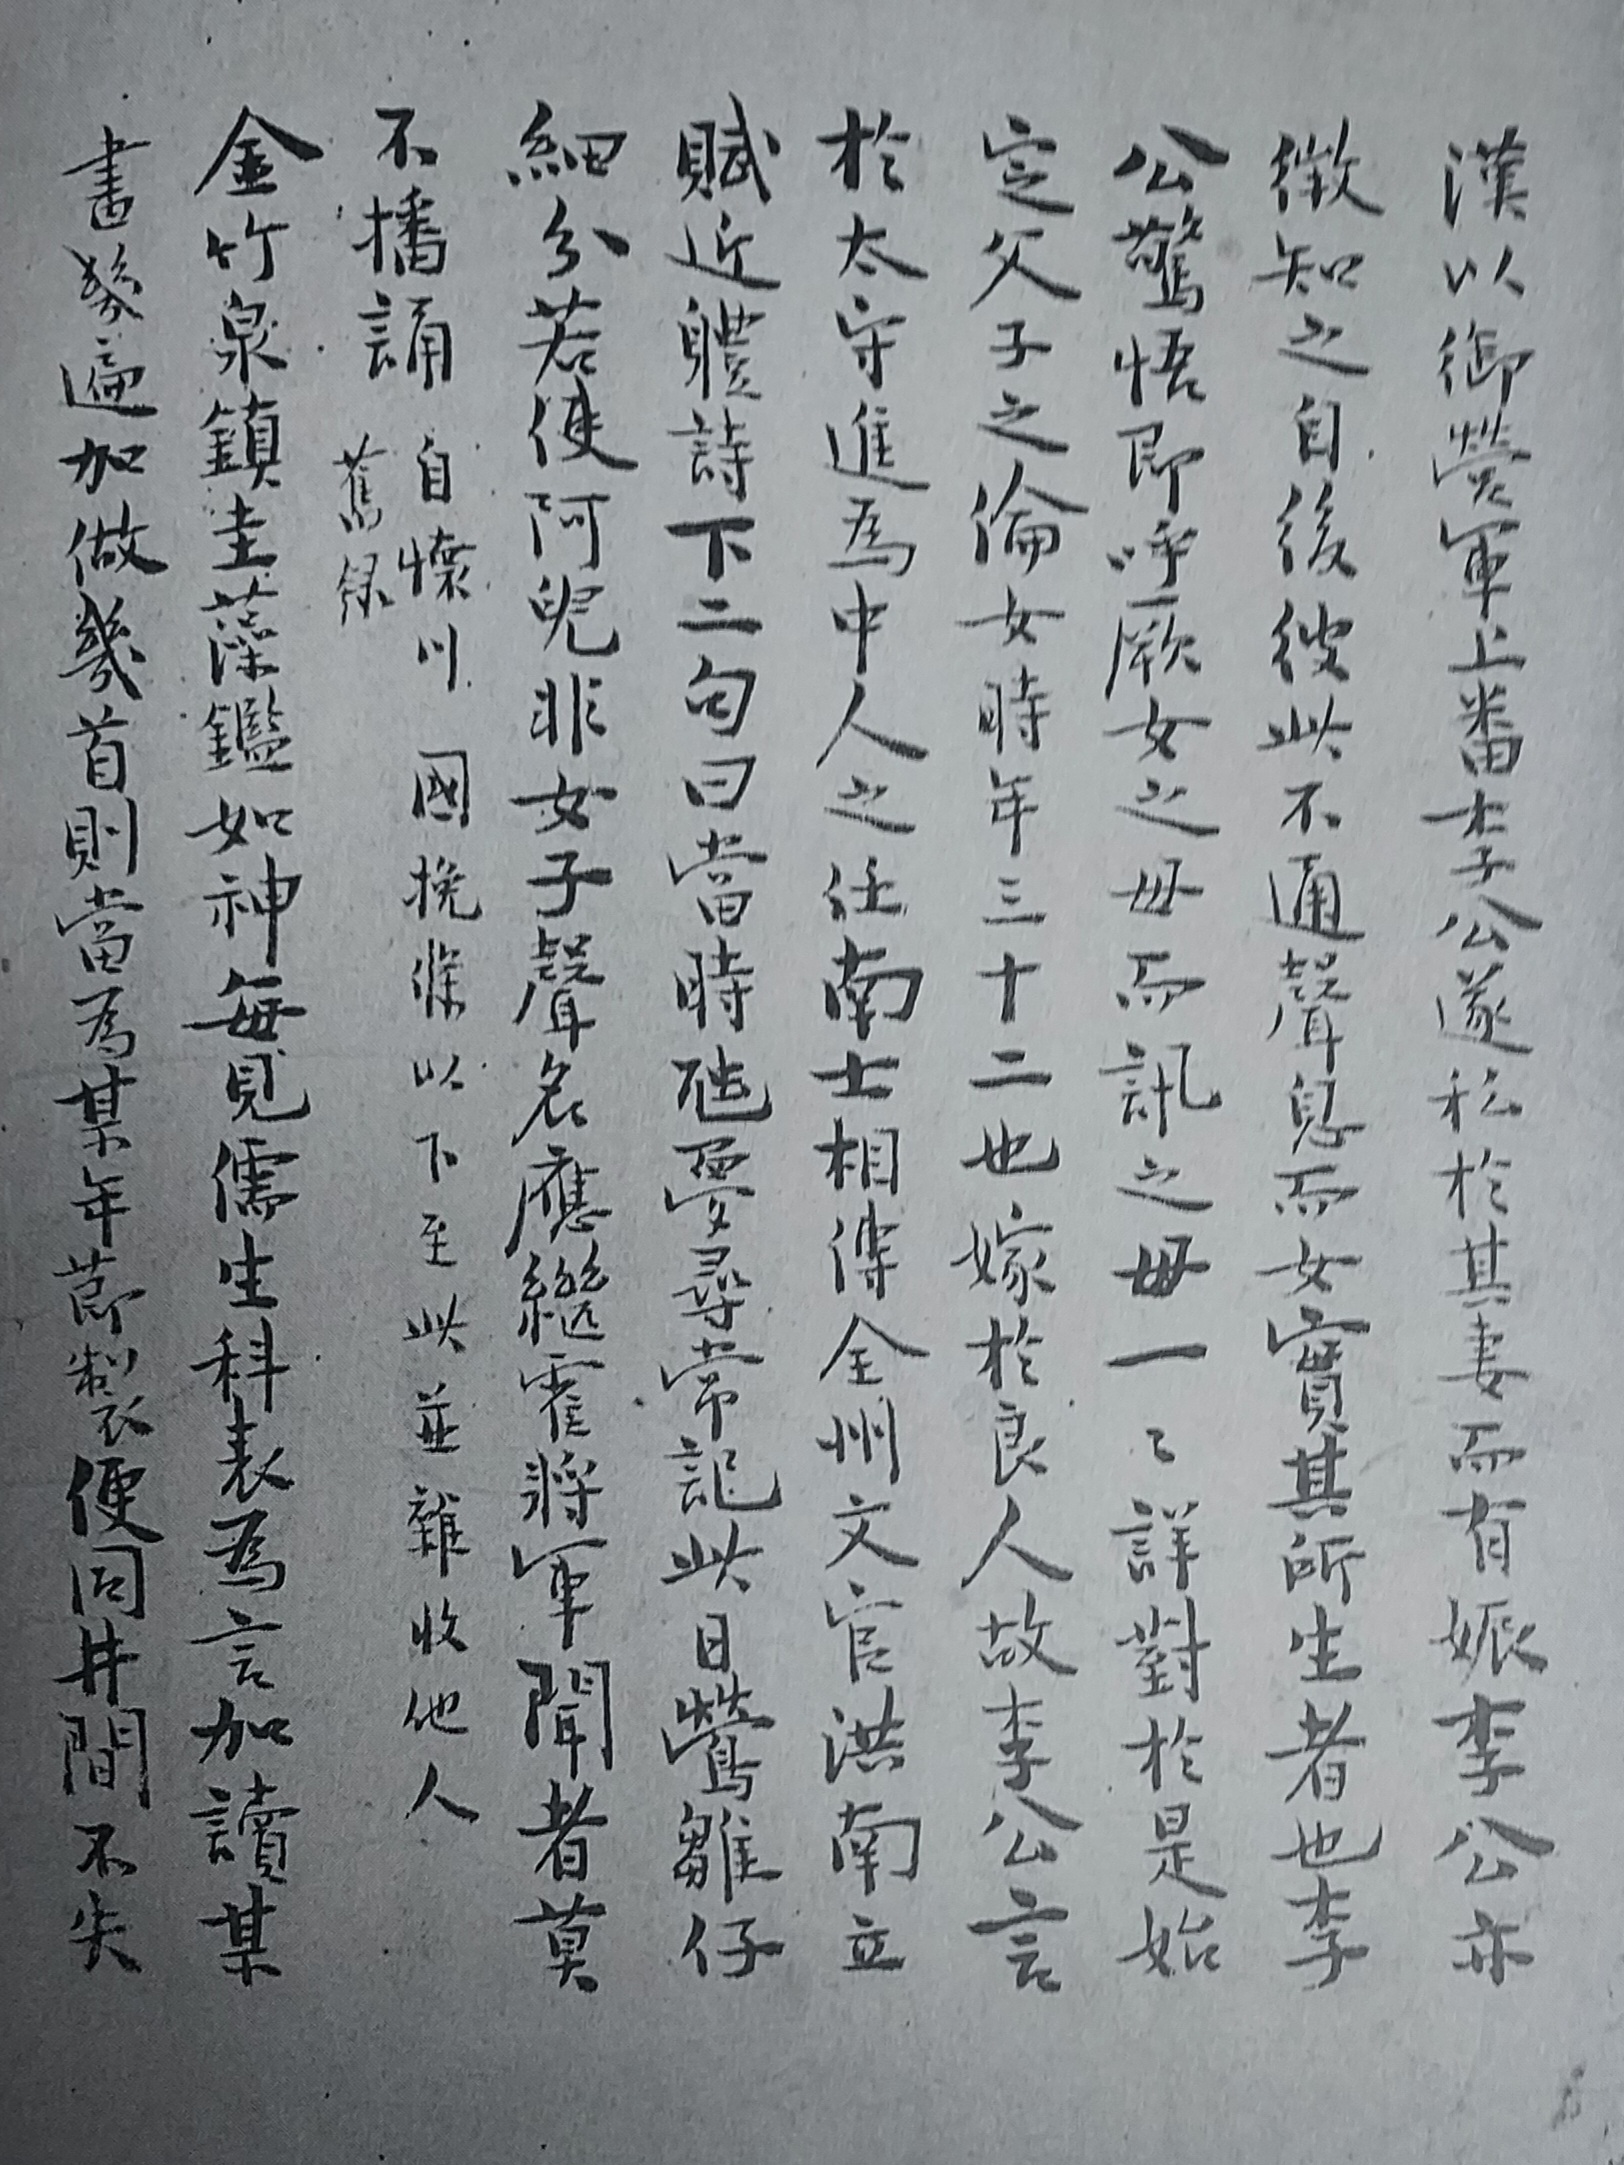 漢以御營軍上番李公遂私於其妻而有娠李公亦
微知之自後彼此不通聲息而女實其所生者也李
公驚悟即呼厥女之母而訊之母一々詳對於是始
定父子之倫女時年三十二也嫁於良人故李公言
於太守進為中人之任南士相傳全州文官洪南立
賦近體詩下二句曰當時虺夢尋常記此日鶯雛仔
細分若使阿兒非女子聲名應繼霍將軍聞者莫
不播誦
自懷川 國挽條以下至此並雜收他人
舊錄
金竹泉鎮圭藻鑑如神每見儒生科表為言加讀某
書幾遍加做幾首則當為某年節製便同井間不失